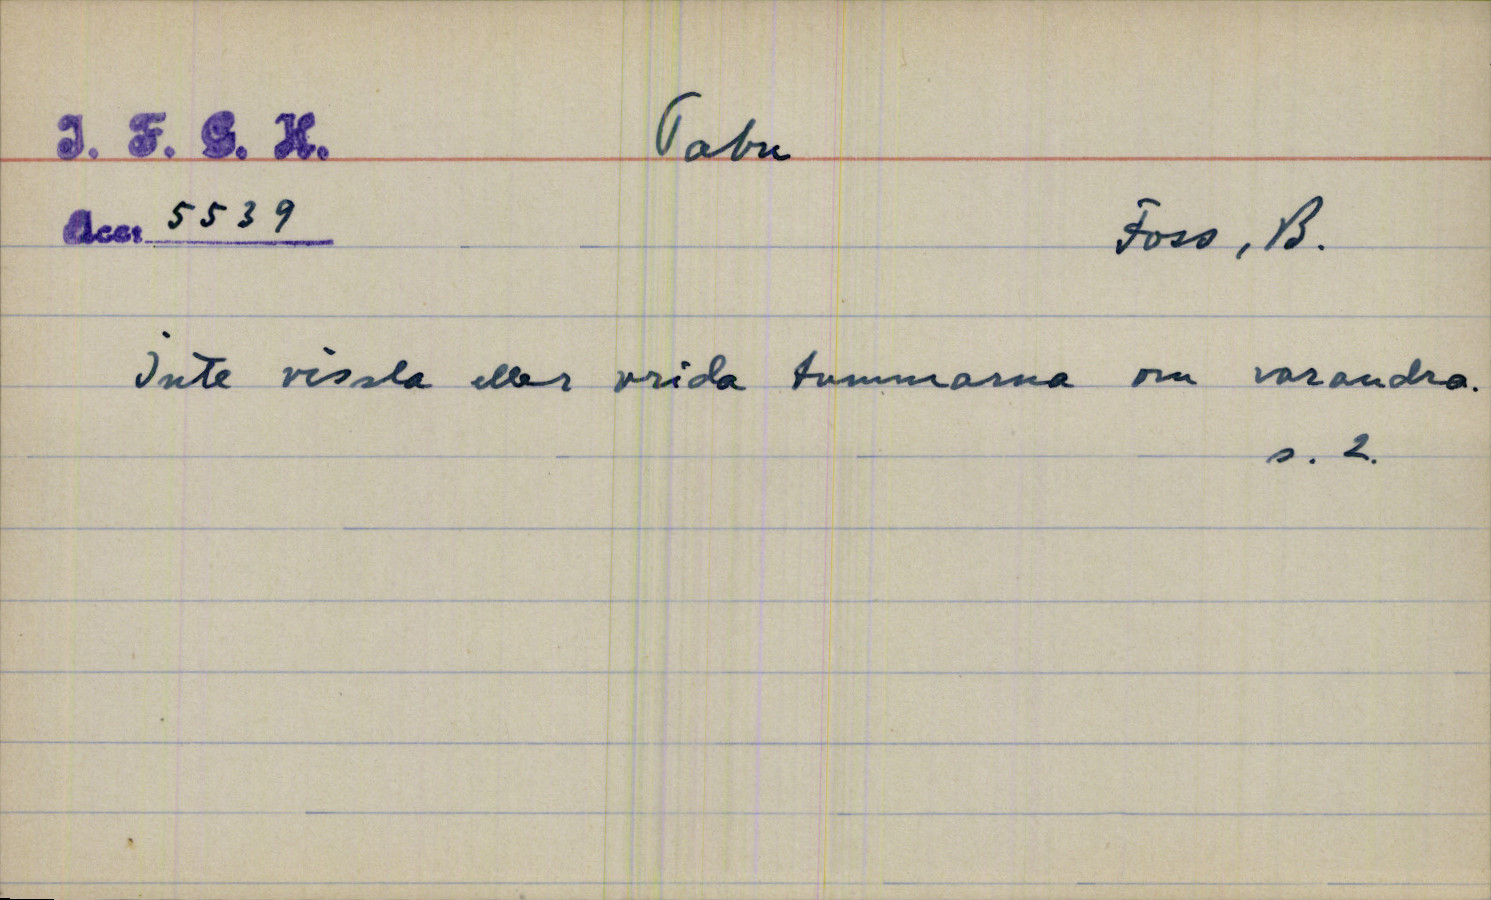 I. F. G. H. Tabu
Acc: 5539
Foss, B.
Inte vissla eller vrida tummarna om varandra.
s. 2.